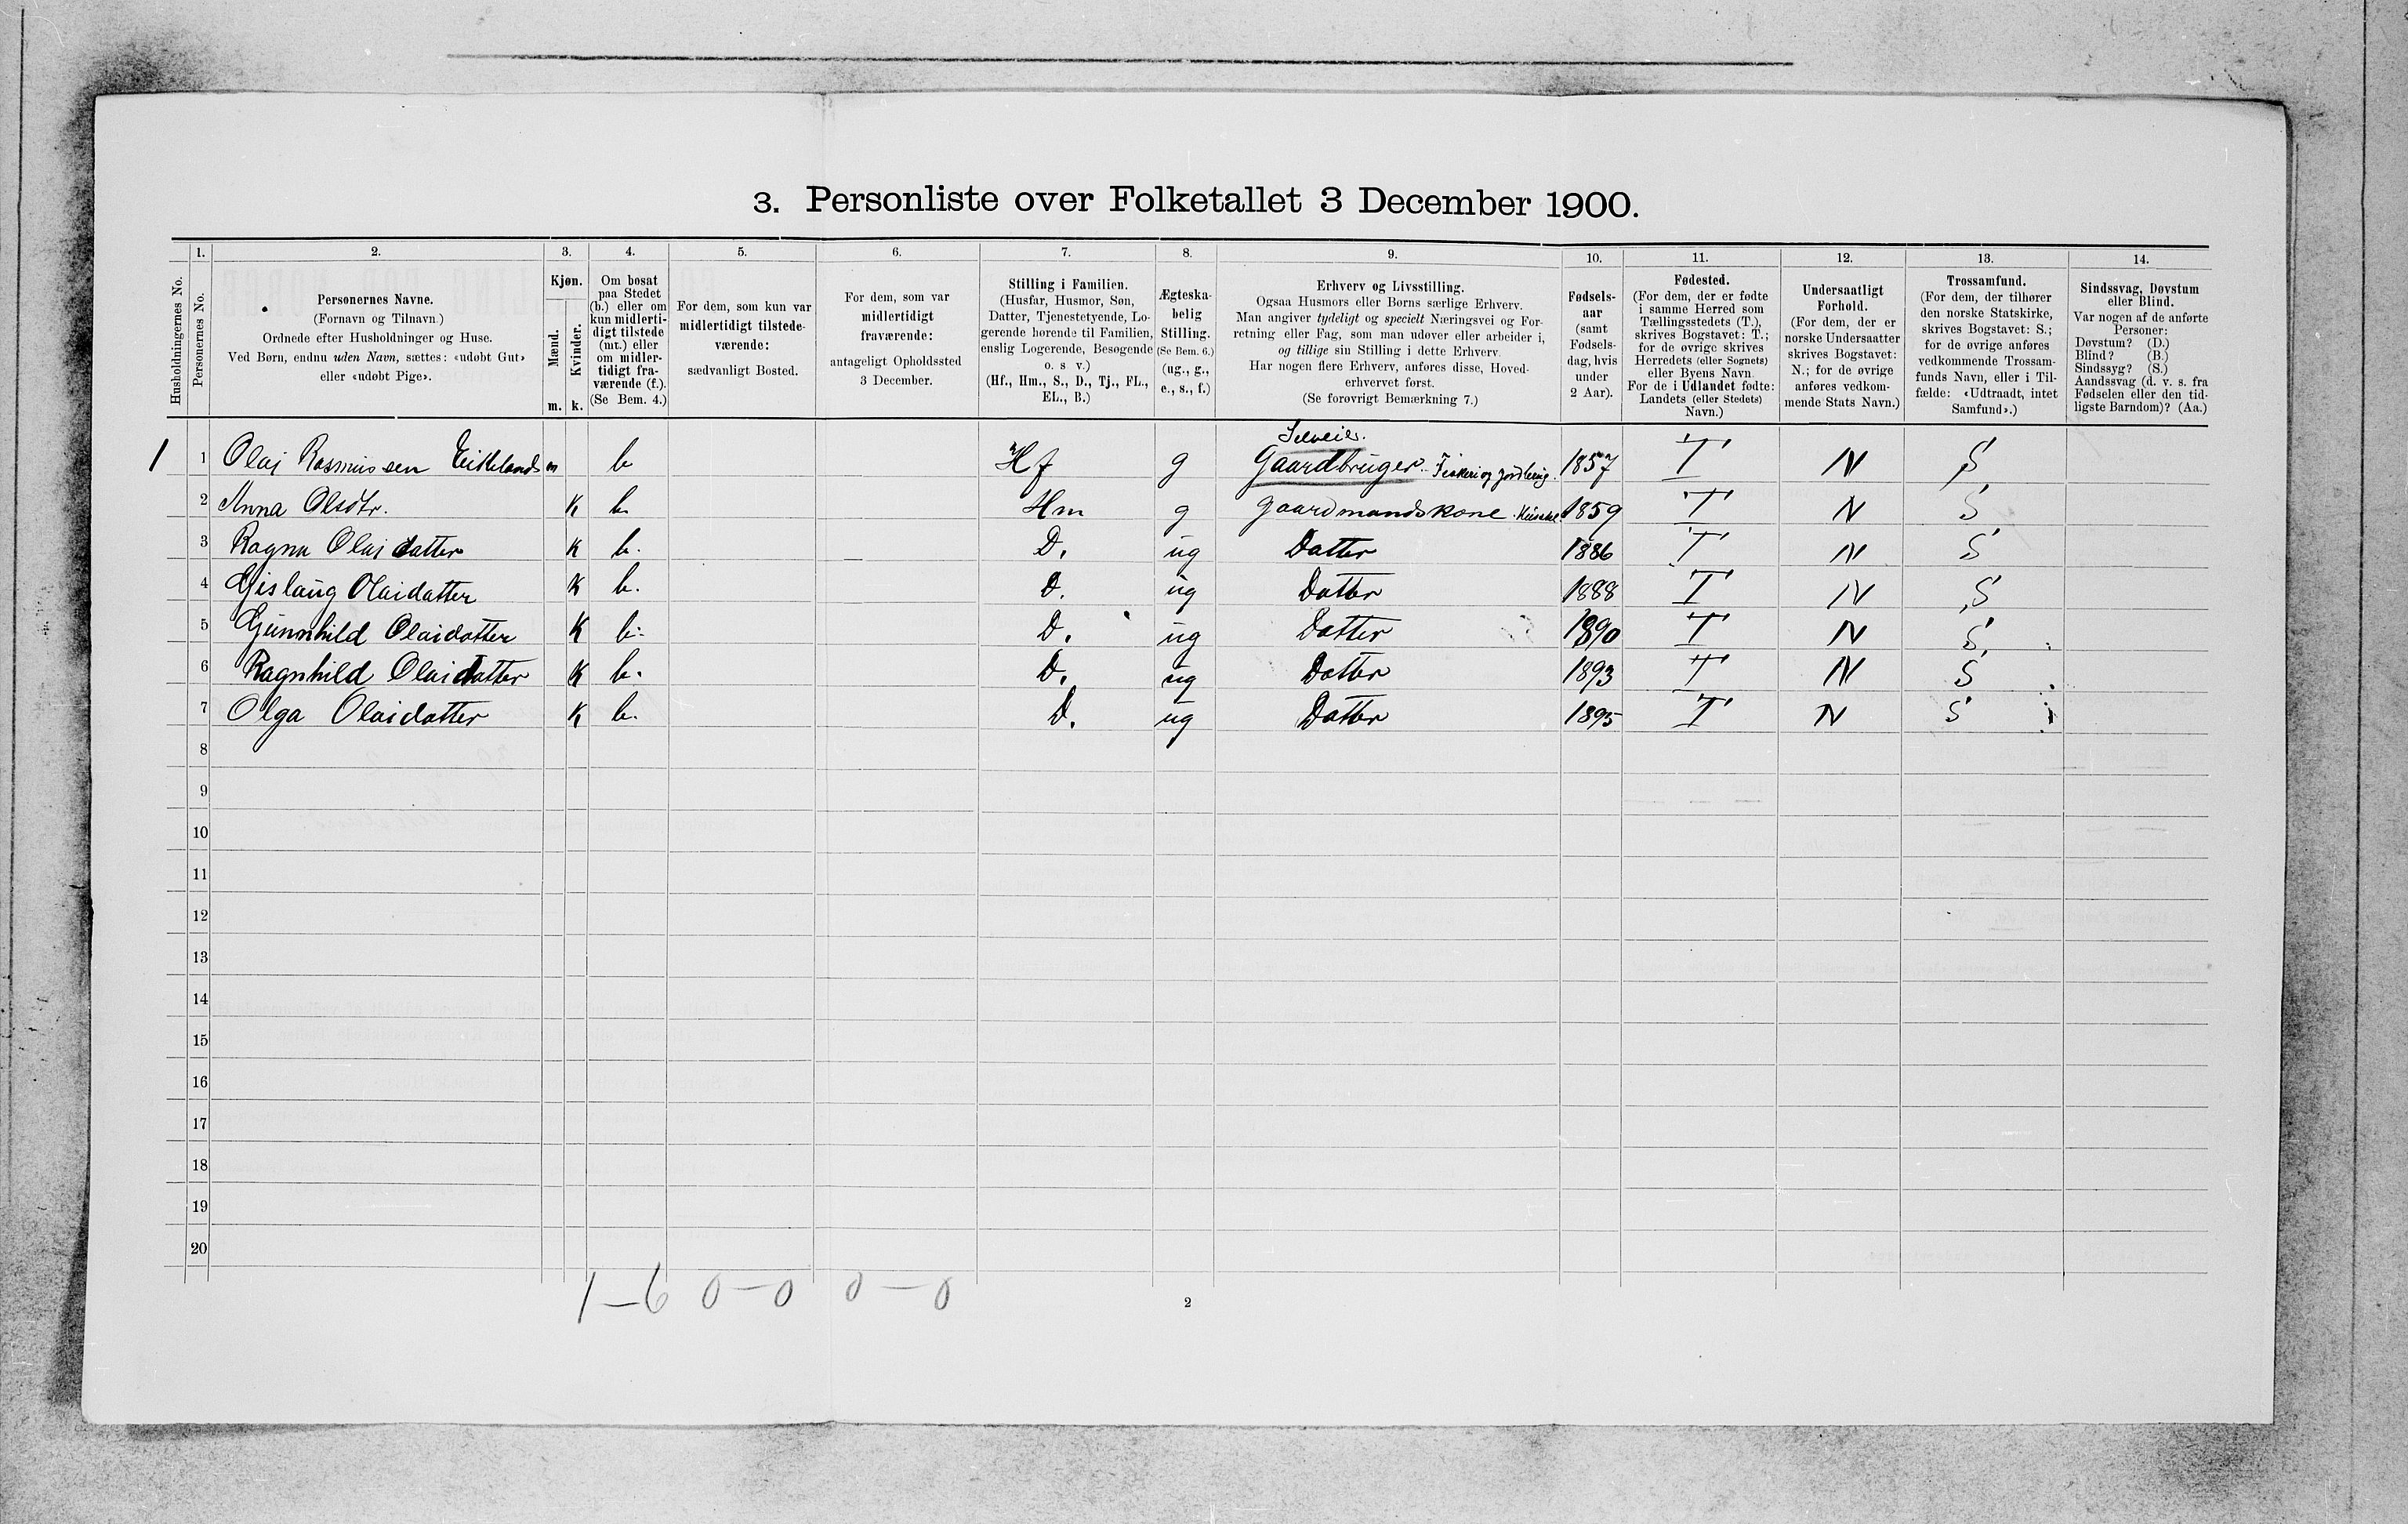 3. Personliste over Folketallet 3 December 1900.
1. 2. 3. 4. 5. 6. 7. 8. 9. 10. 11. 12. 13. 14.
Husholdningernes No.
Personernes No.
Personernes Navne.
(Fornavn og Tilnavn.)
Ordnede efter Husholdninger og Huse.
Ved Børn, endnu uden Navn, sættes: «udøbt Gut»
eller «udøbt Pige».
Kjøn.
Mænd.
Kvinder.
m. k.
Om bosat
paa Stedet
(b.) eller om
kun midlerti-
digt tilstede
(mt.) eller
om midler-
tidigt fra-
værende (f.).
(Se Bem. 4.)
For dem, som kun var
midlertidigt tilstede-
værende:
sædvanligt Bosted.
For dem, som var
midlertidigt
fraværende:
antageligt Opholdssted
3 December.
Stilling i Familien.
(Husfar, Husmor, Søn,
Datter, Tjenestetyende, Lo-
gerende hørende til Familien,
enslig Logerende, Besøgende
o. s v.)
(Hf., Hm., S., D., Tj., FL.,
EL., B.)
Ægteska-
belig
Stilling.
(Se Bem. 6.)
(ug., g.,
e., s., f.)
Erhverv og Livsstilling.
Ogsaa Husmors eller Børns særlige Erhverv.
Man angiver tydeligt og specielt Næringsvei og For-
retning eller Fag, som man udøver eller arbeider i,
og tillige sin Stilling i dette Erhverv.
Har nogen flere Erhverv, anføres disse, Hoved-
erhvervet først.
(Se forøvrigt Bemærkning 7.)
Fødsels-
aar
(samt
Fødsels-
dag, hvis
under
2 Aar).
Fødested.
(For dem, der er fødte
i samme Herred som
Tællingsstedets (T.),
skrives Bogstavet: T.;
for de øvrige skrives
Herredets (eller Sognets)
eller Byens Navn.
For de i Udlandet fødte:
Landets (eller Stedets)
Navn.)
Undersaatligt
Forhold.
(For dem, der er
norske Undersaatter
skrives Bogstavet:
N.; for de øvrige
anføres vedkom-
mende Stats Navn.)
Trossamfund.
(For dem, der tilhører
den norske Statskirke,
skrives Bogstavet: S.;
for de øvrige anføres
vedkommende Trossam-
funds Navn, eller i Til-
fælde: «Udtraadt, intet
Samfund».)
Sindssvag, Døvstum
eller Blind.
Var nogen af de anførte
Personer:
Døvstum? (D.)
Blind? (B.)
Sindssyg? (S.)
Aandssvag (d. v. s. fra
Fødselen eller den tid-
ligste Barndom)? (Aa.)
Selveier.
1 1 Olai Rasmussen Eikeland m b Hf g Gaardbruger. Fiskeri og Jordbrug. 1857 T N S
2 Anna Olsdtr. K b. Hm g Gaardmandskone 1859 T N S
3 Ragna Olaidatter K b. D. ug Datter 1886 T N S
4 Gislaug Olaidatter K b. D. ug Datter 1888 T N S
5 Gunnhild Olaidatter K b. D. ug Datter 1890 T N S.
6 Ragnhild Olaidatter K b. D. ug Datter 1893 T N S
7 Olga Olaidatter K b. D. ug Datter 1895 T N S
8
9
10
11
12
13
14
15
16
17
18
19
20
1–6 0–0 0–0
2